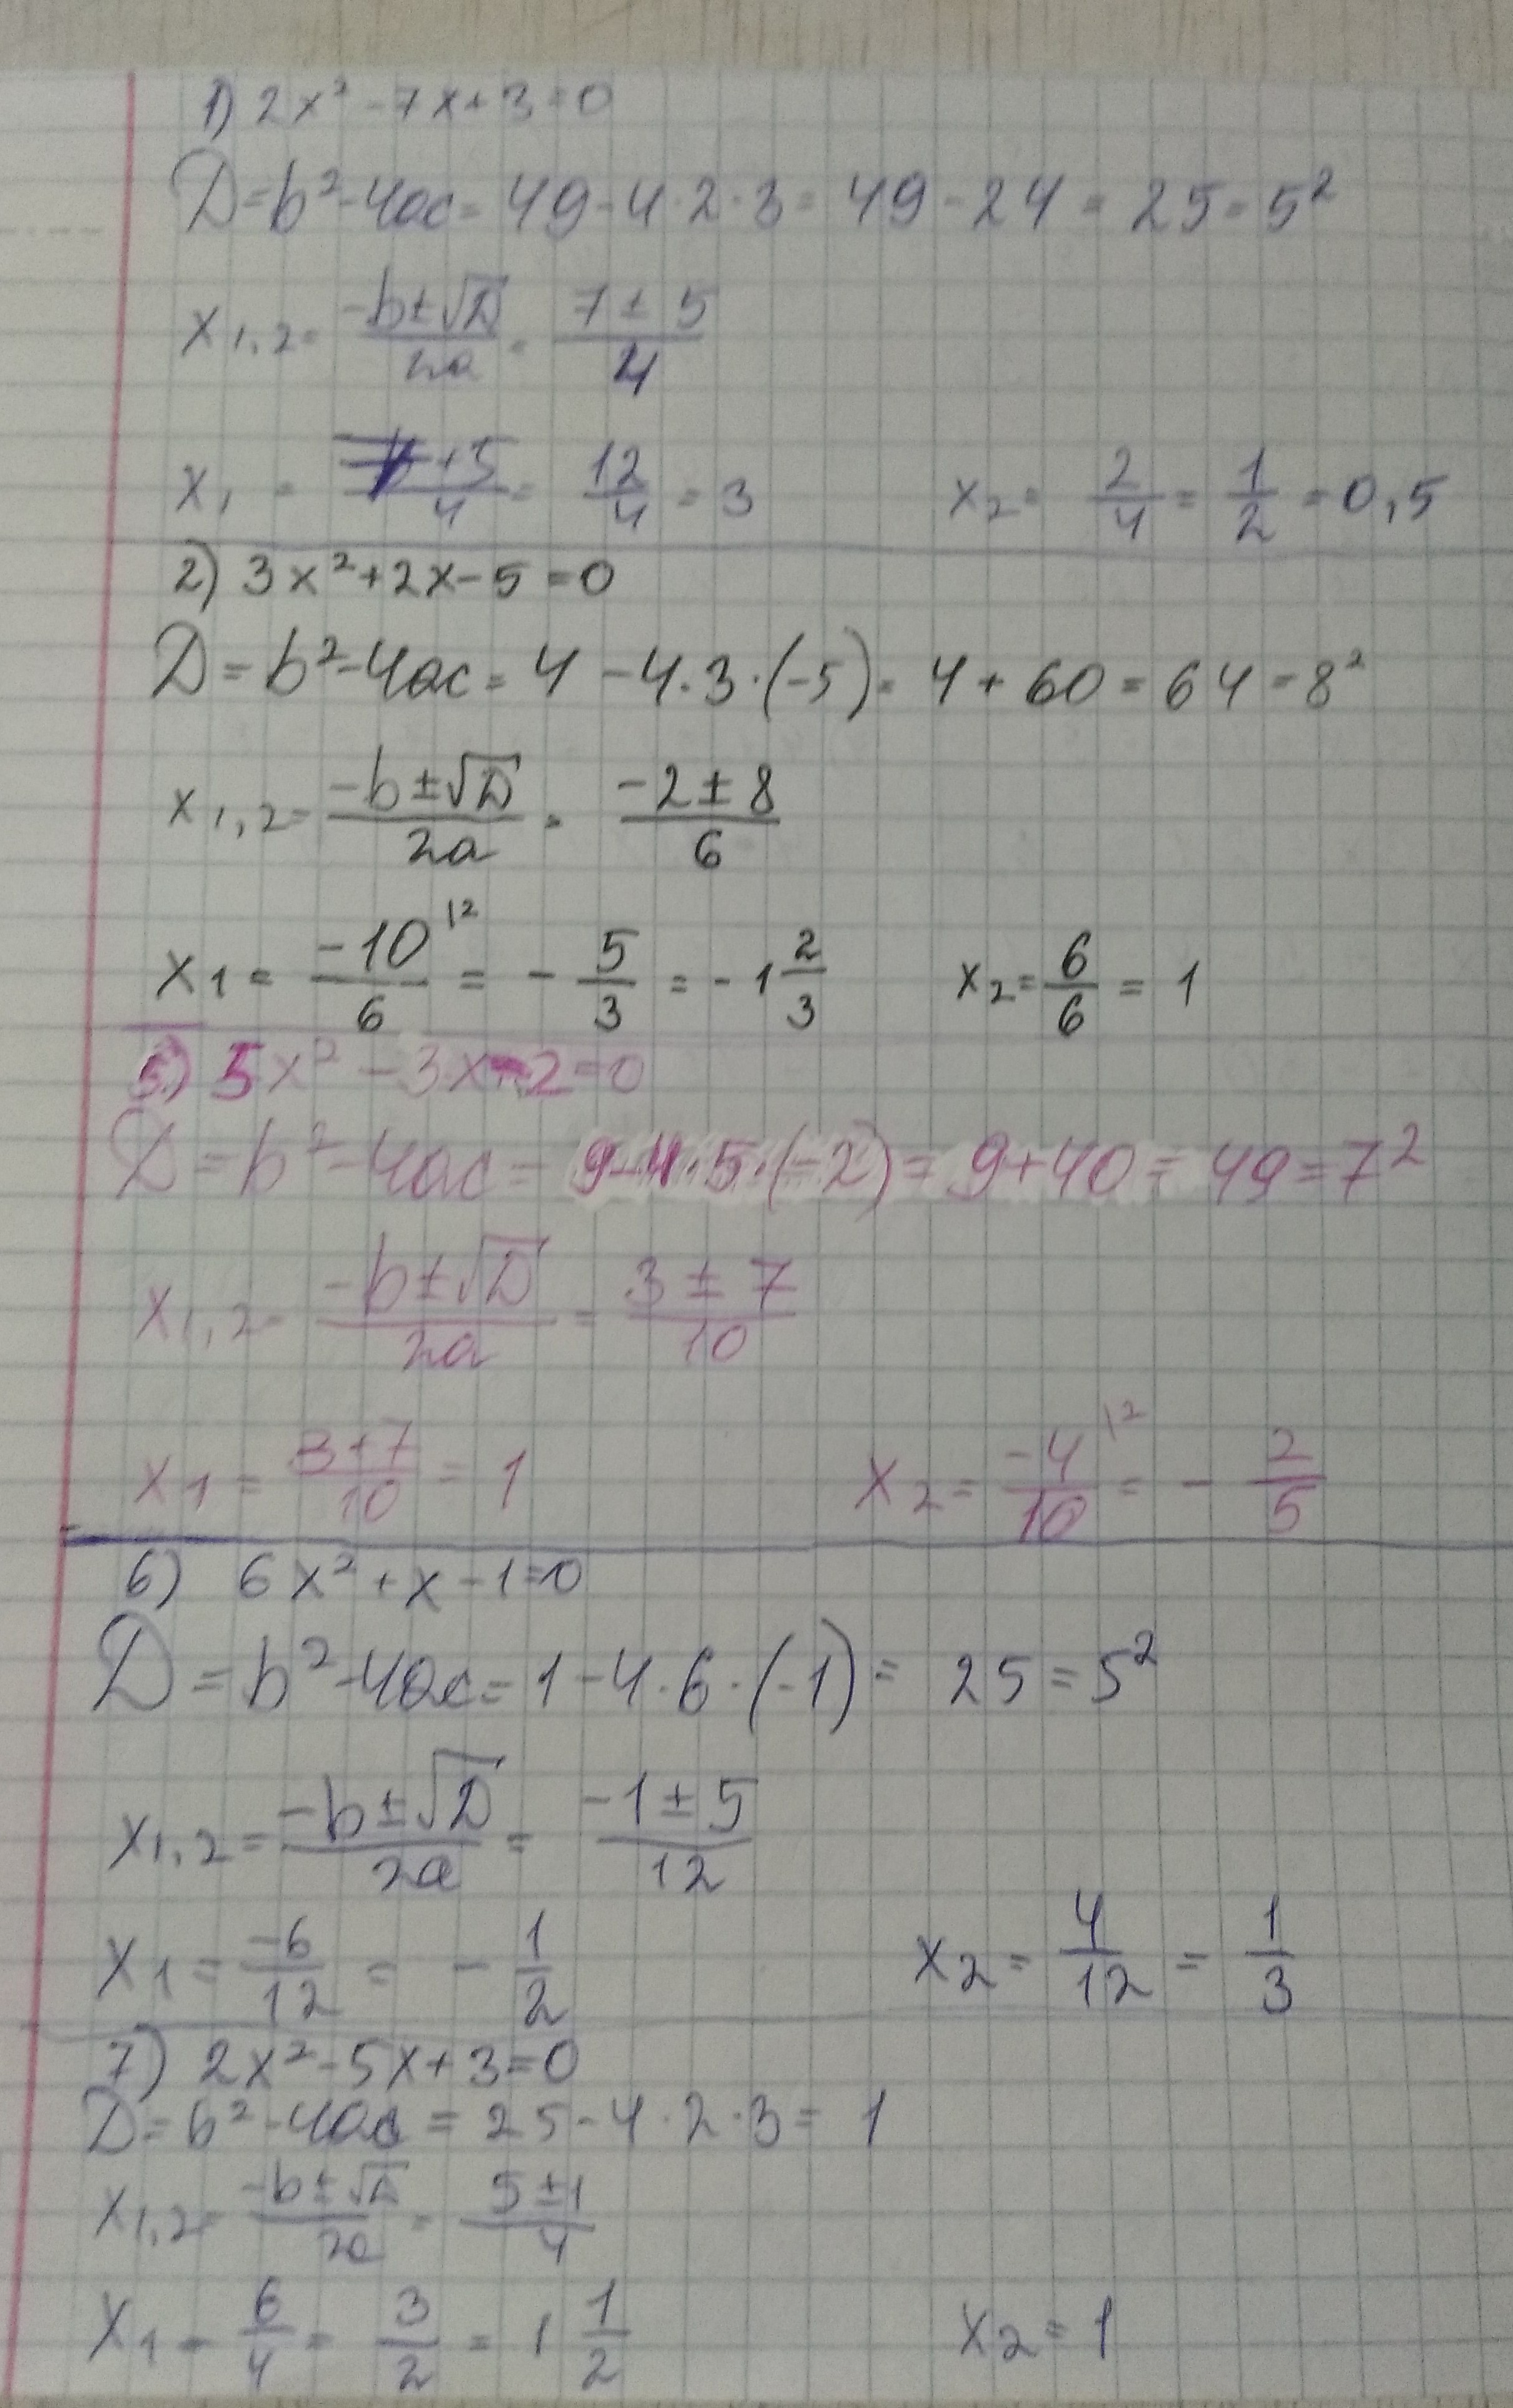 1) 2x² - 7x + 3 = 0
D = b² - 4ac = 49 - 4·2·3 = 49 - 24 = 25 = 5²
x1,2 = (-b±√D)/2a = (7 ± 5)/4
x1 = +5/4 = 12/4 = 3 x2 = 2/4 = 1/2 = 0,5
2) 3x² + 2x - 5 = 0
D = b² - 4ac = 4 - 4·3·(-5) = 4 + 60 = 64 = 8²
x1,2 = (-b±√D)/2a = (-2 ± 8)/6
x1 = -10/6 |2 = - 5/3 = - 1 2/3 x2 = 6/6 = 1
5) 5x² - 3x - 2 = 0
D = b² - 4ac = 9 - 4·5·(-2) = 9 + 40 = 49 = 7²
x1,2 = (-b±√D)/2a = (3 ± 7)/10
x1 = (3+7)/10 = 1 x2 = -4/10 |2 = - 2/5
6) 6x² + x - 1 = 0
D = b² - 4ac = 1 - 4·6·(-1) = 25 = 5²
x1,2 = (-b±√D)/2a = (-1 ± 5)/12
x1 = -6/12 = - 1/2 x2 = 4/12 = 1/3
7) 2x² - 5x + 3 = 0
D = b² - 4ac = 25 - 4·2·3 = 1
x1,2 = (-b±√D)/2a = (5 ± 1)/4
x1 = 6/4 = 3/2 = 1 1/2 x2 = 1